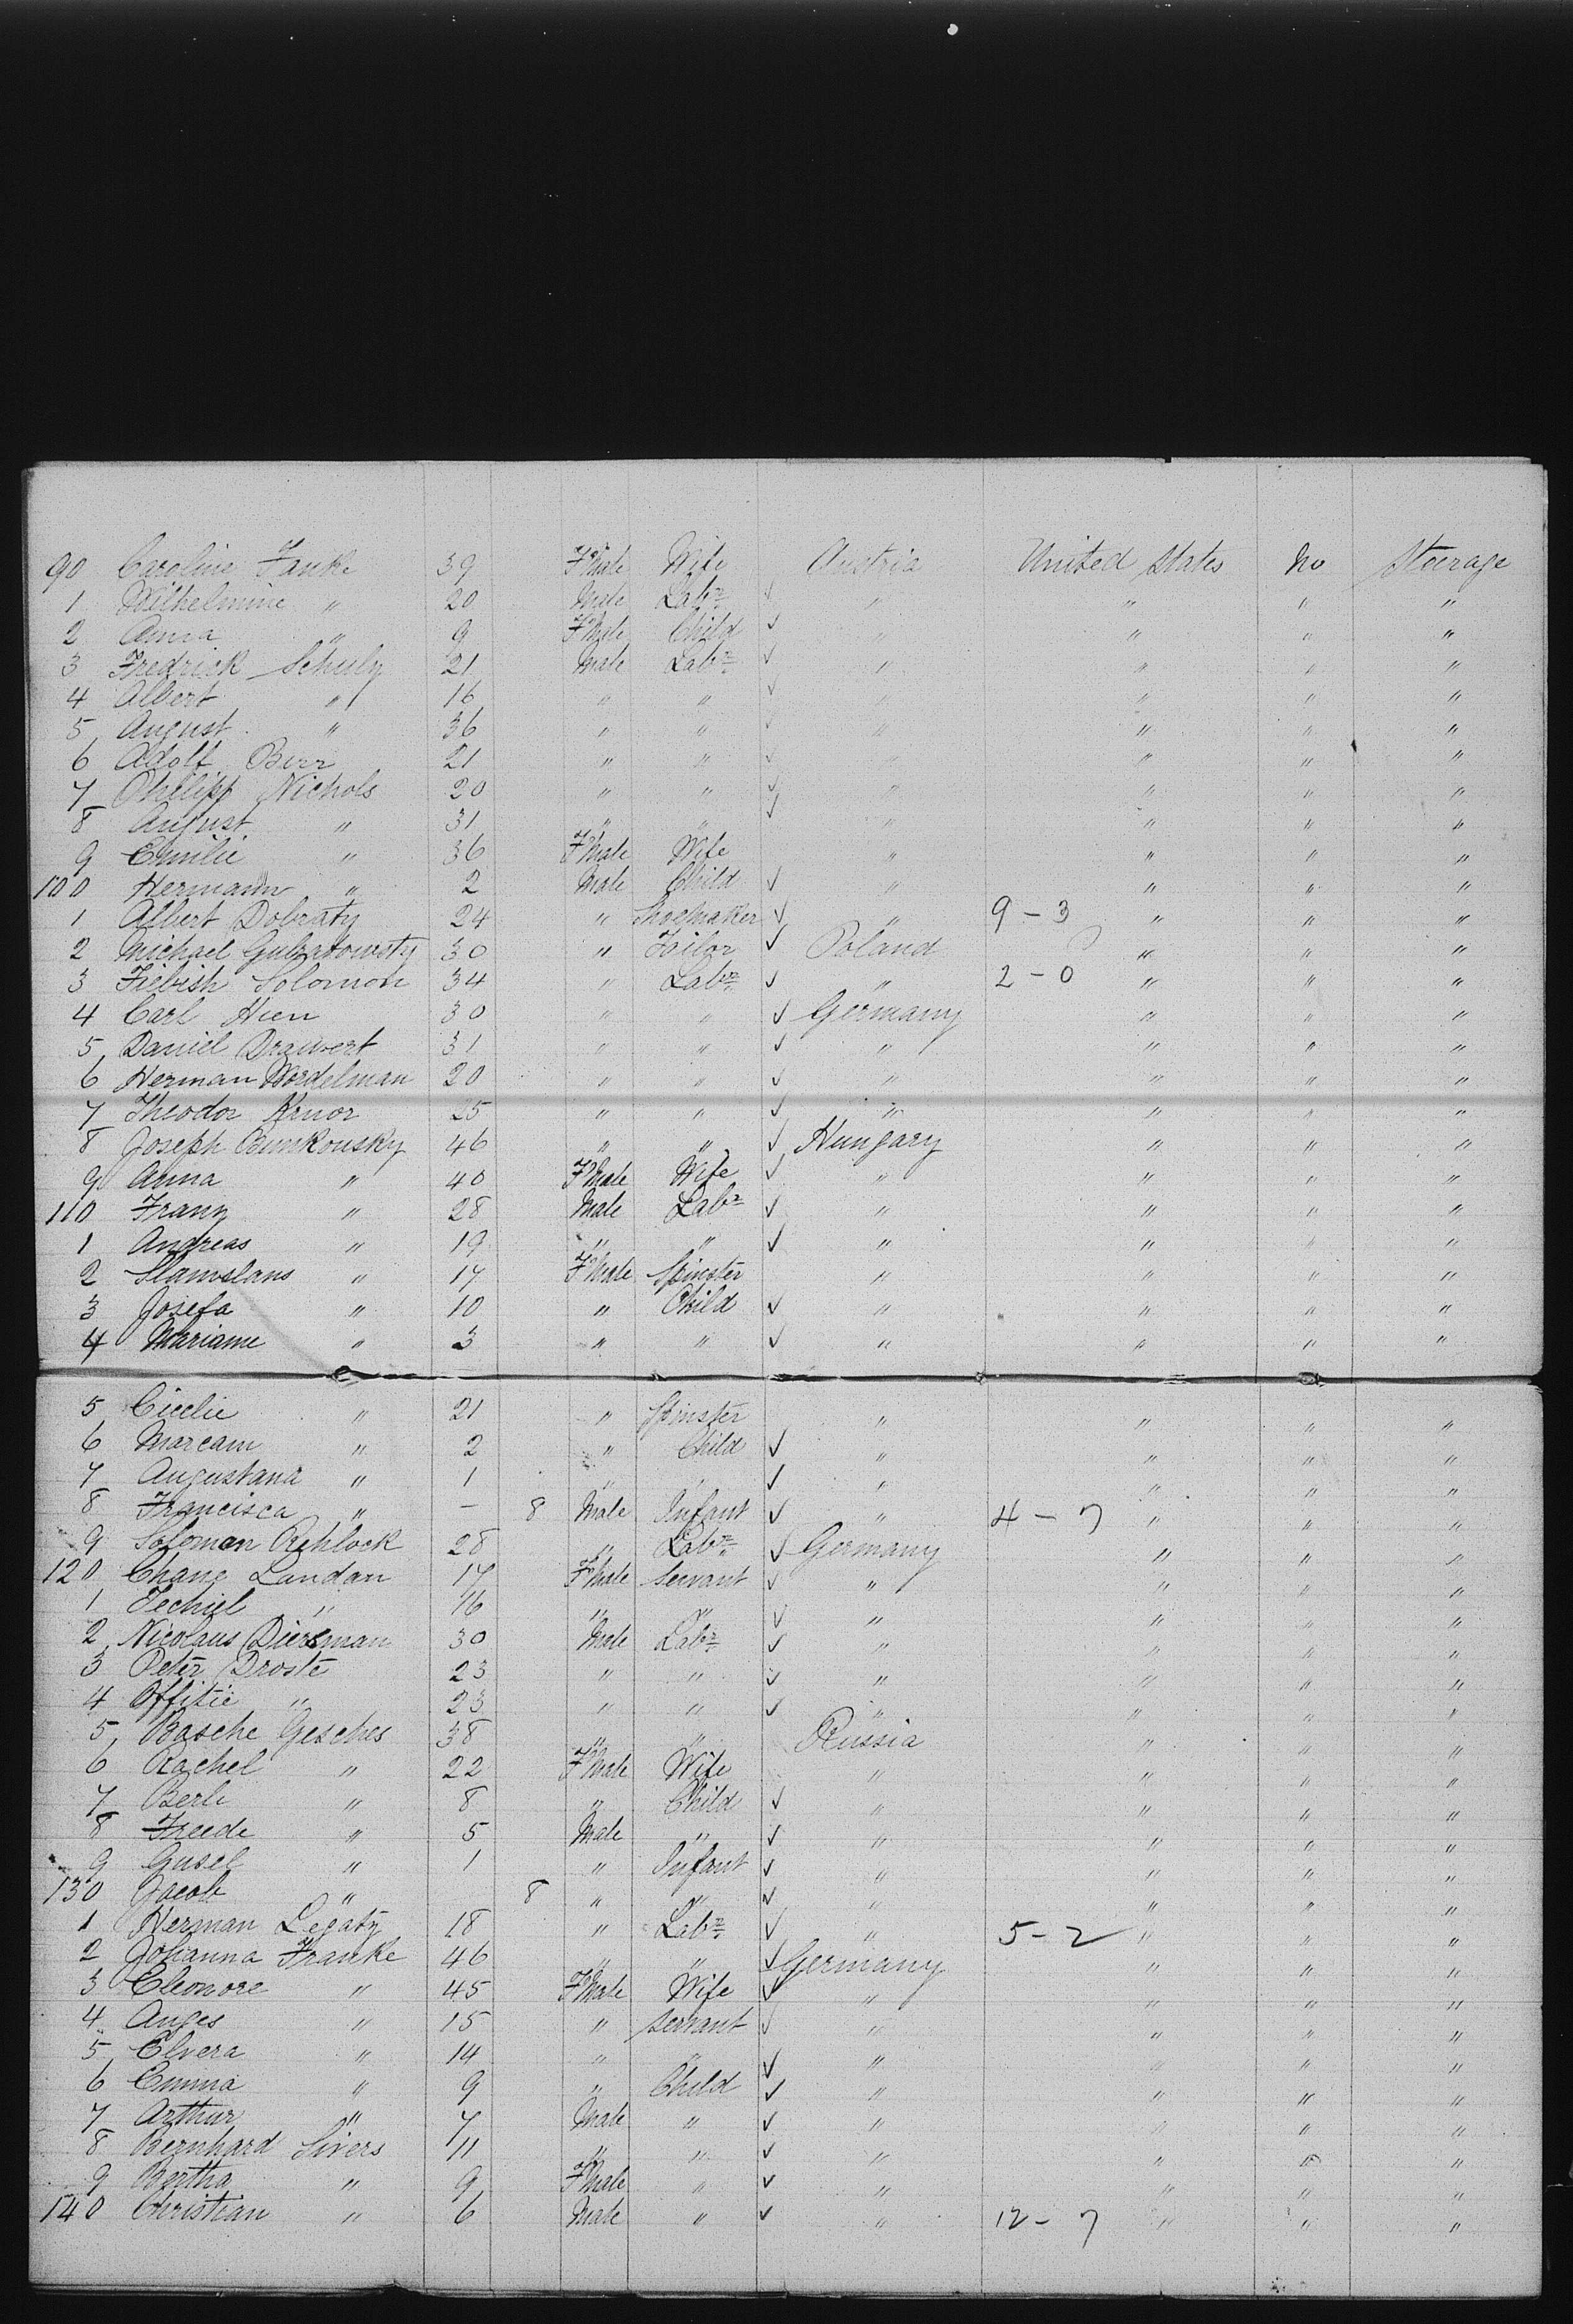 90 Caroline Janke 39 F'male Wife Austria United States No Steerage
1 Wilhelmine " 20 Male Labr ✓ " " " "
2 Anna " 9 F'male Child ✓ " " " "
3 Fredrick Schulz 21 Male Labr ✓ " " " "
4 Albert " 16 " " ✓ " " " "
5 August " 36 " " ✓ " " " "
6 Adolf Birr 21 " " ✓ " " " "
7 Philipp Nichols 20 " " ✓ " " " "
8 August " 31 " " ✓ " " " "
9 Emilie " 36 F'male Wife " " " "
100 Hermann " 2 Male Child ✓ " " " "
1 Albert Dobraty 24 " Shoemaker ✓ " 9-3 " " "
2 Michael 30 " Tailor ✓ Poland " " "
3 Fiebish Solomon 34 " Labr ✓ " 2-0 " " "
4 Carl Hien 30 " " ✓ Germany " " "
5 Daniel Drawert 31 " " ✓ " " " "
6 Herman Wordelman 20 " " ✓ " " " "
7 Theodor 25 " " ✓ " " " "
8 Joseph Bunkousky 46 " " ✓ Hungary " " "
9 Anna " 40 F'male Wife ✓ " " " "
110 Franz " 28 Male Labr ✓ " " " "
1 Andreas " 19 " " ✓ " " " "
2 Stanislaus " 17 F'male Spinster " " " "
3 Josefa " 10 " Child ✓ " " " "
4 Mariane " 3 " " ✓ " " " "
5 Cicelie " 21 " Spinster " " " "
6 Marcam " 2 " Child ✓ " " " "
7 Augustana " 1 " " ✓ " " " "
8 Francisca " - 8 Male Infant ✓ " 4-7 " " "
9 Soloman 28 " Labr ✓ Germany " " "
120 Chane Landan 17 F'male Servant ✓ " " " "
1 Jechiel " 16 " " ✓ " " " "
2 Nicolaus Diersman 30 Male Labr ✓ " " " "
3 Peter Droste 23 " " ✓ " " " "
4 Offitie " 23 " " ✓ " " " "
5 Basche Gesches 38 " " Russia " " "
6 Rachel " 22 F'male Wife " " " "
7 Berl " 8 " Child ✓ " " " "
8 Freede " 5 Male " ✓ " " " "
9 Gusel " 1 " Infant ✓ " " " "
130 Jacob " 8 " " ✓ " " " "
1 Herman Legaty 18 " Labr ✓ " 5-2 " " "
2 Johanna Franke 46 " " ✓ Germany " " "
3 Eleonore " 45 F'male Wife ✓ " " " "
4 Anges " 15 " Servant ✓ " " " "
5 Elvera " 14 " " ✓ " " " "
6 Emma " 9 " Child ✓ " " " "
7 Arthur " 7 Male " ✓ " " " "
8 Bernhard Sivers 11 " " ✓ " " " "
9 Bertha " 9 F'male " ✓ " " " "
140 Christian " 6 Male " ✓ " 12-7 " " "